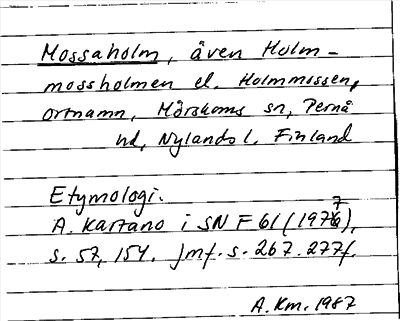 Mossaholm, även Holm-
mossholmen el. Holmmossen,
ortnamn, Mörskoms sn, Pernå
hd, Nylands l. Finland
Etymologi.
A. Kartano i SNF 61 (1977),
s. 57, 154. Jmf. s. 267. 277f.
A.Km. 1987